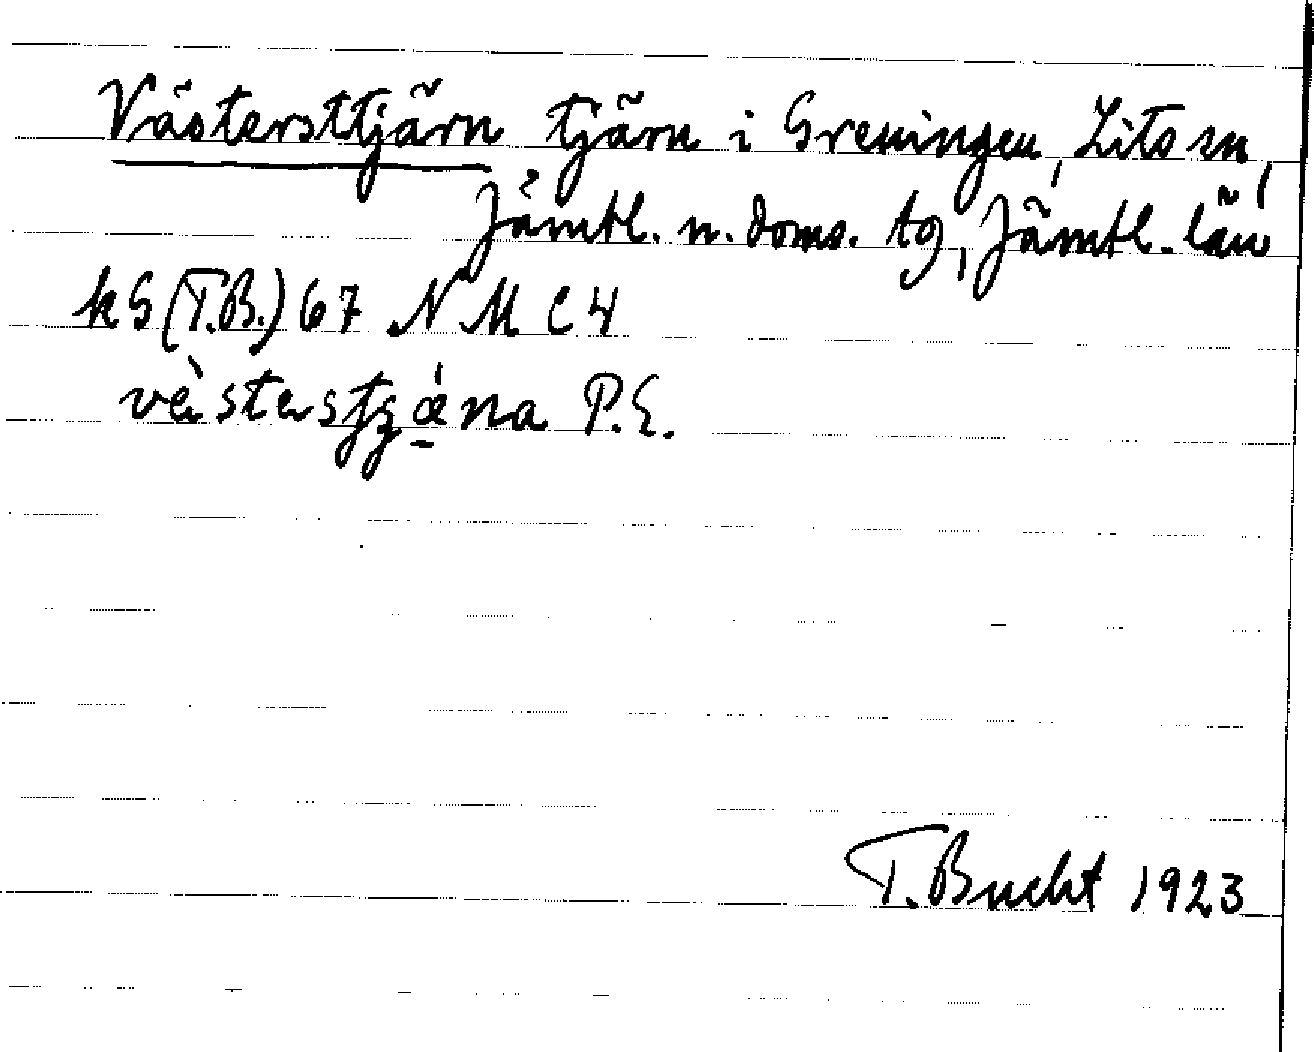 Västersttjärn tjärn i Greningen, Lits sn,
Jämtl. n. doms. tg, Jämtl. län
kG (T.B.) 67 N M C 4
vèsterstjzǽna P.E.
T. Bucht 1923